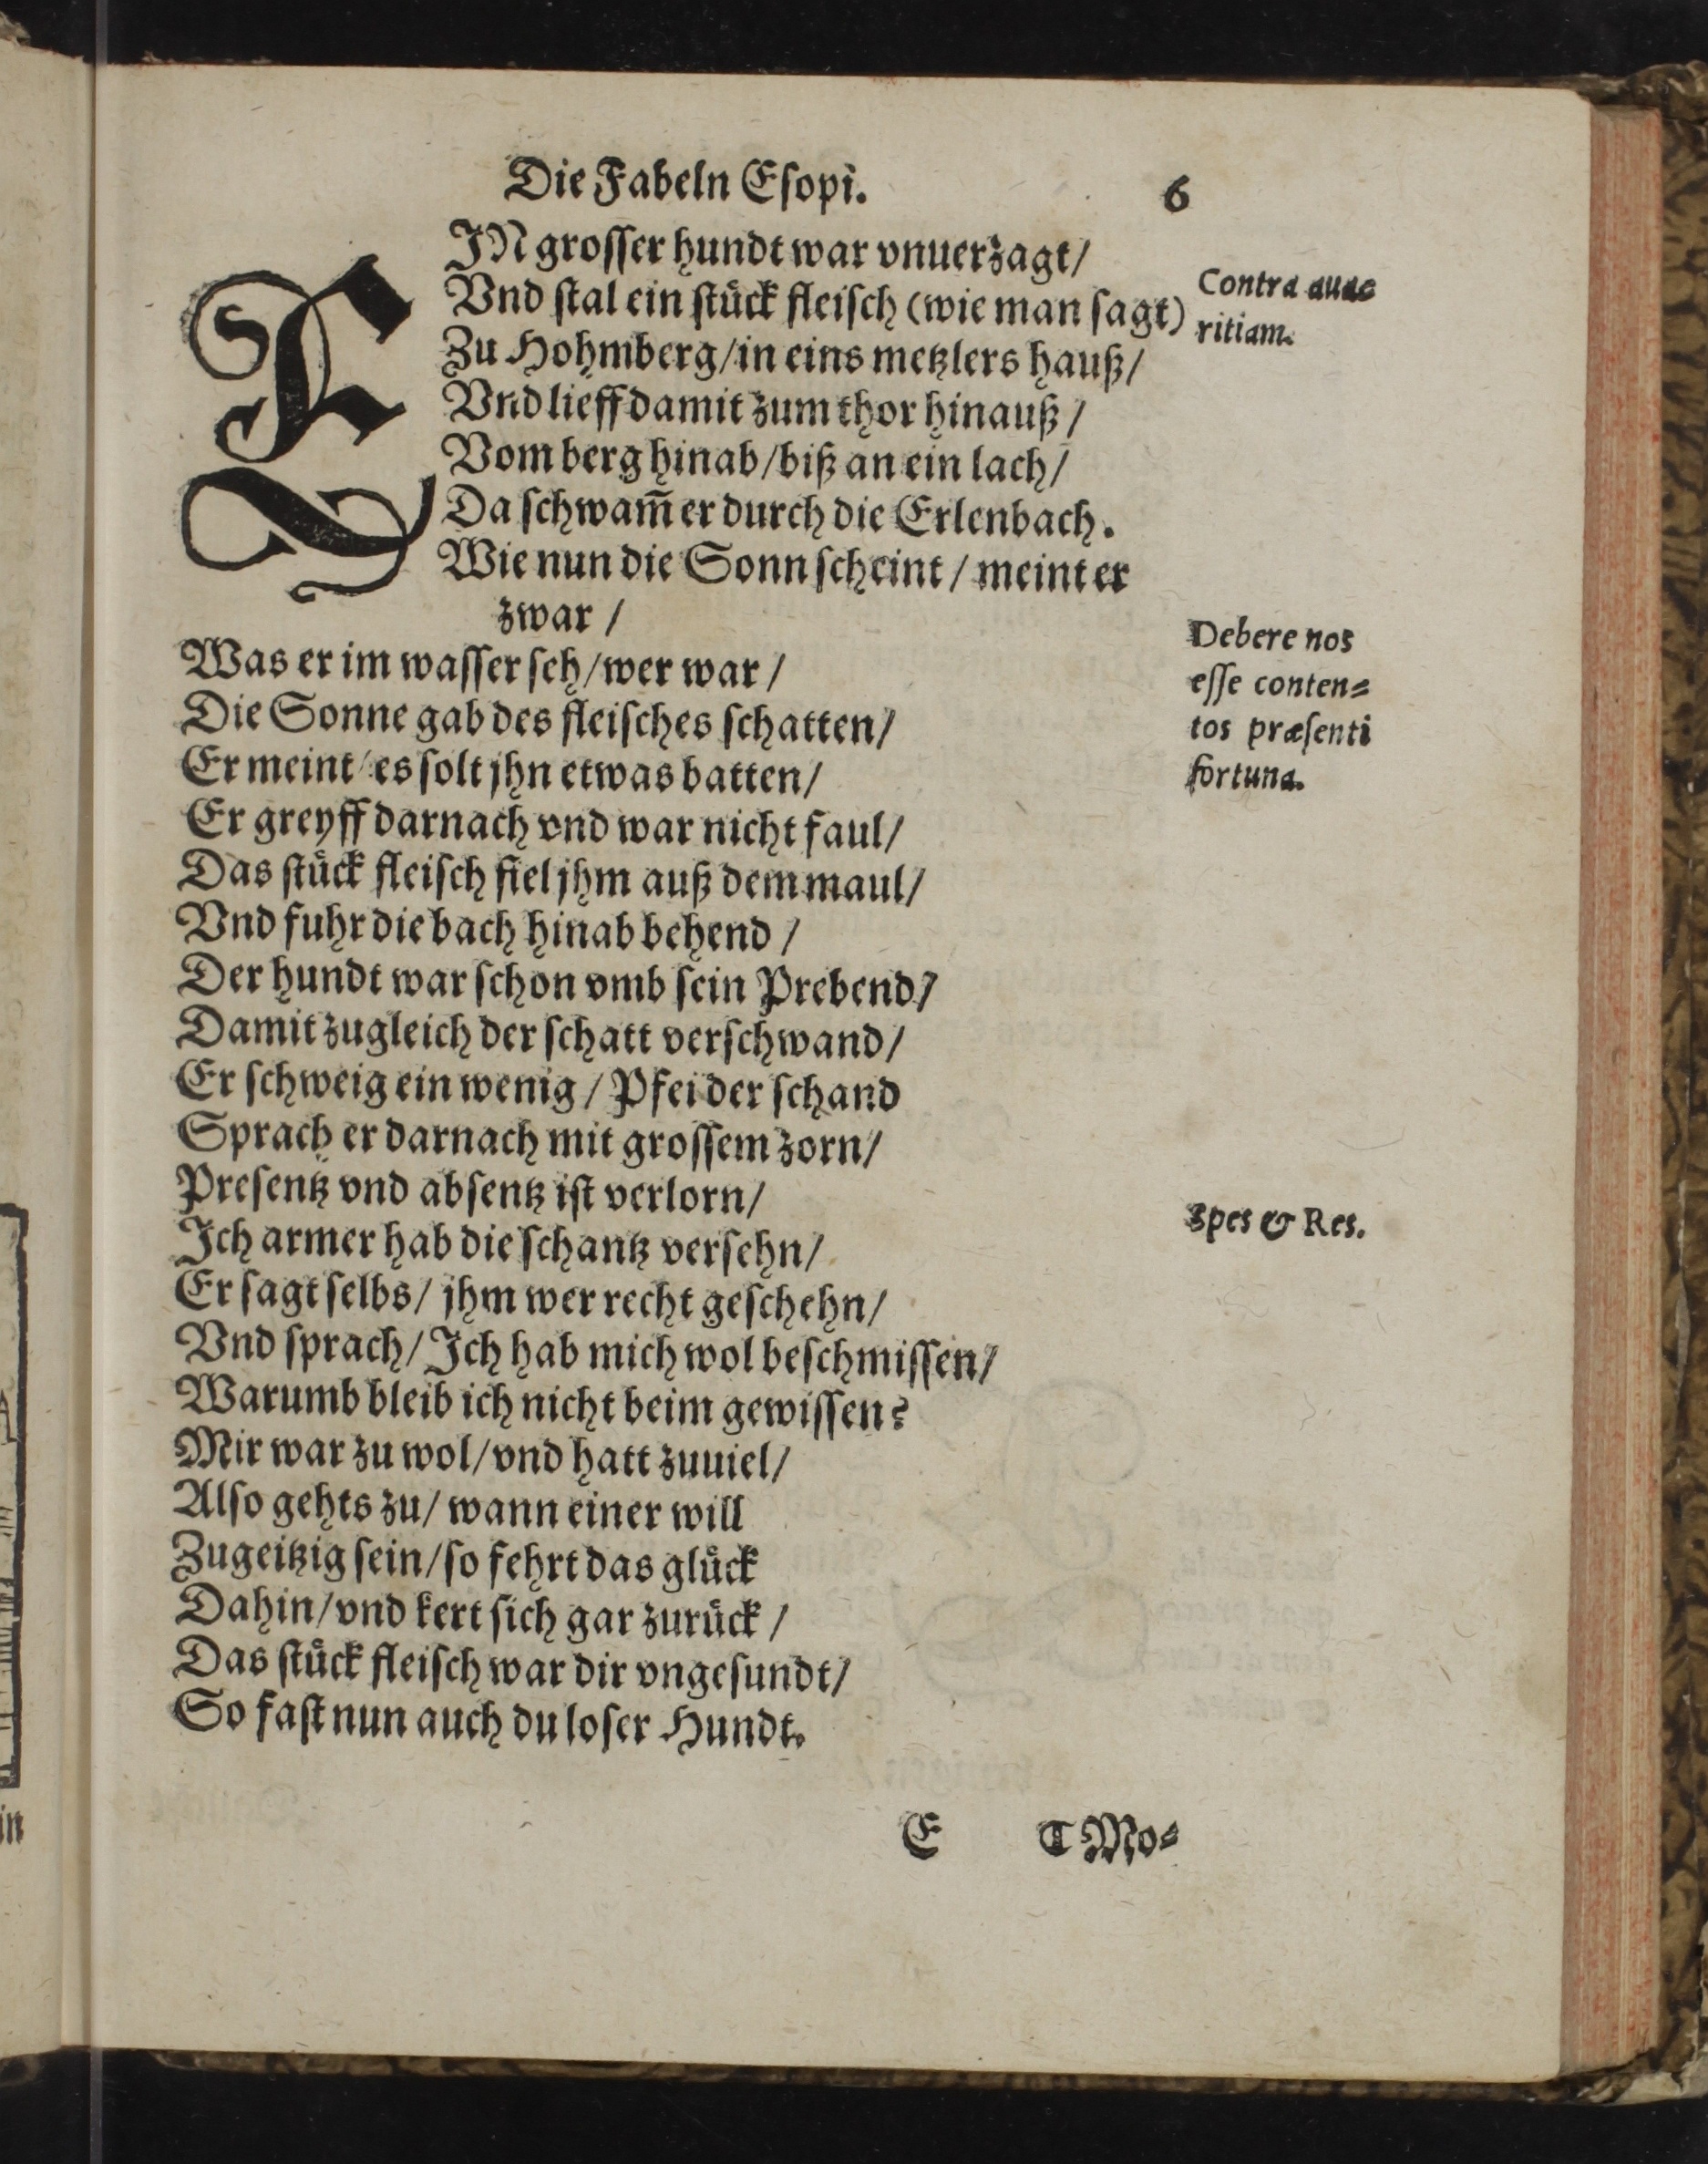 Die Fabeln Eſopi. 6
EJN groſſer hundt war vnuerzagt/
Vnd ſtal ein ſtuͤck fleiſch (wie man ſagt)
Zu Hohmberg/in eins metzlers hauß/
Vnd lieff damit zum thor hinauß/
Vom berg hinab/biß an ein lach/
Da ſchwam̄ er durch die Erlenbach.
Wie nun die Sonn ſcheint/ meint er
zwar/
Was er im waſſer ſeh/wer war/
Die Sonne gab des fleiſches ſchatten/
Er meint/es ſolt jhn etwas batten/
Er greyff darnach vnd war nicht faul/
Das ſtuͤck fleiſch fiel jhm auß dem maul/
Vnd fuhr die bach hinab behend/
Der hundt war ſchon vmb ſein Prebend/
Damit zugleich der ſchatt verſchwand/
Er ſchweig ein wenig/ Pfei der ſchand
Sprach er darnach mit groſſem zorn/
Preſentz vnd abſentz iſt verlorn/
Ich armer hab die ſchantz verſehn/
Er ſagt ſelbs/ jhm wer recht geſchehn/
Vnd ſprach/ Ich hab mich wol beſchmiſſen/
Warumb bleib ich nicht beim gewiſſen?
Mir war zu wol/vnd hatt zuuiel/
Alſo gehts zu/ wann einer will
Zugeitzig ſein/ſo fehrt das gluͤck
Dahin/vnd kert ſich gar zuruͤck/
Das ſtuͤck fleiſch war dir vngeſundt/
So faſt nun auch du loſer Hundt.
E ¶ Mo⸗
Contra aua⸗
ritiam.
Debere nos
eſſe conten⸗
tos præſenti
fortuna.
Spes & Res.
in